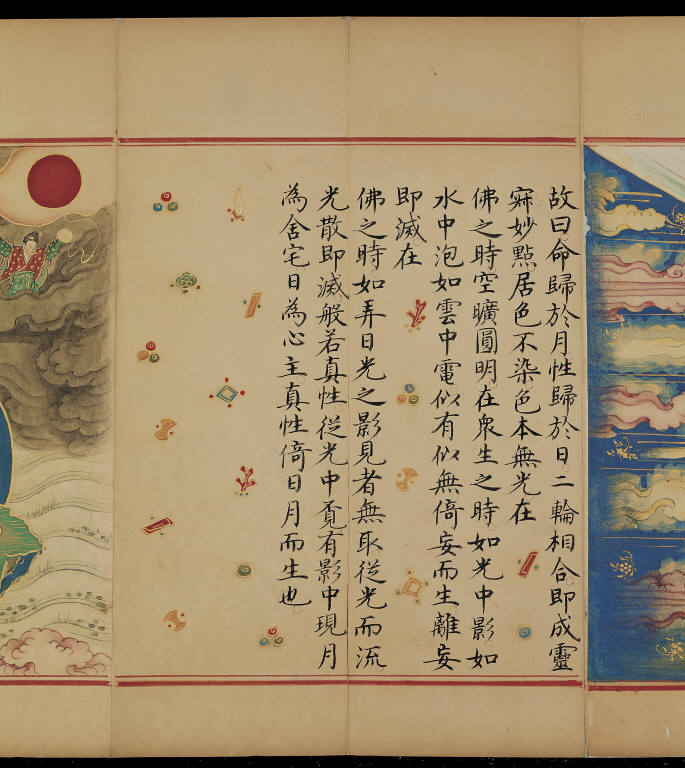 故曰命歸於月性歸於日二輪相合即成靈
寂妙㸃居色不染色本無光在
佛之時空曠圓明在衆生之時如光中影如
水中泡如雲中電似有似無倚妄而生離妄
即滅在
佛之時如弄日光之影見者無取從光而流
光散即滅般若真性從光中覔有影中現月
為舍宅日為心主真性倚日月而生也